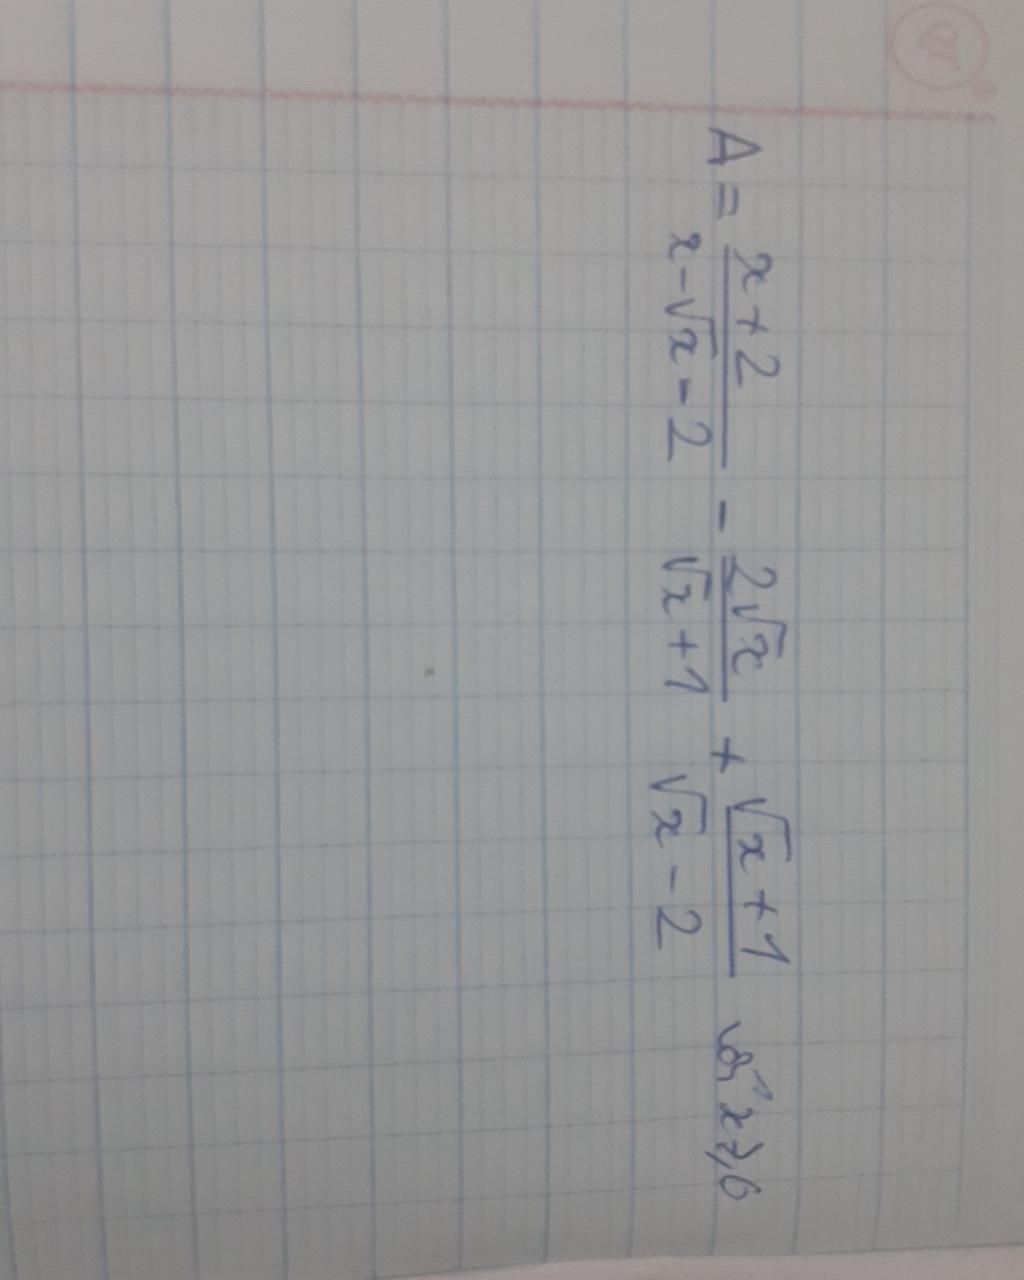 A = \frac{x+2}{x-\sqrt{x}-2} - \frac{2\sqrt{x}}{\sqrt{x}+1} + \frac{\sqrt{x}+1}{\sqrt{x}-2} với x ≥ 0